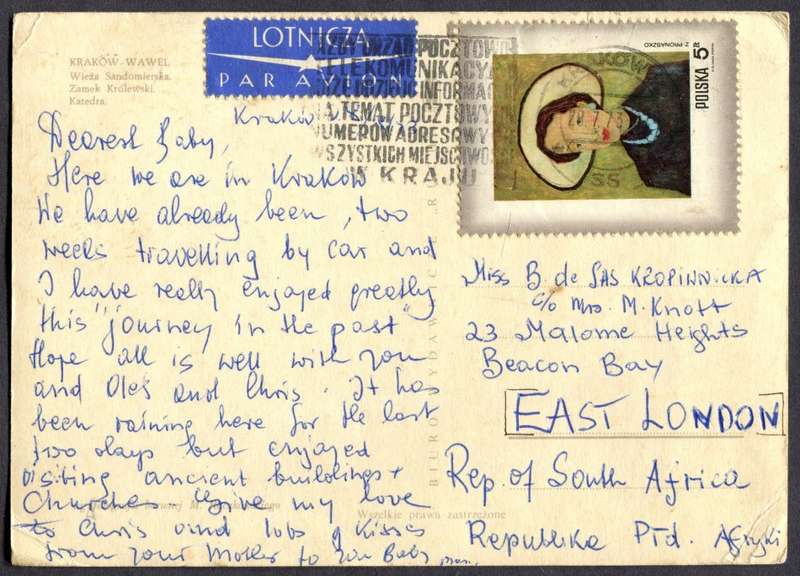 KRAKÓW - WAWEL
Wieża Sandomierska.
Zamek Królewski.
Katedra.
LOTNICZA
PAR AVION
KAŻDY URZĄD POCZTOWO
TELEKOMUNIKACYJ
INFORMAC
NA TEMAT POCZTOWY
NUMERÓW ADRESOWY
WSZYSTKICH MIEJSCOWO
W KRAJU
Z. PRONASZKO
POLSKA 5 ZŁ
Kraków
Dearest Baby,
Here we are in Kraków
We have already been, two
weeks travelling by car and
I have really enjoyed greatly
this "journey in the past"
Hope all is well with you
and Oleś and Chris. It has
been raining here for the last
two days but enjoyed
visiting ancient buildings +
Churches Give my love
to Chris and lots of kisses
from your Mother to you Baby
BIURO WYDAWNICZE "R
Wszelkie prawa zastrzeżone
Miss B. de SAS KROPIWNICKA
c/o Mrs. M. Knott
23 Malome Heights
Beacon Bay
EAST LONDON
Rep. of South Africa
Republika Płd. Afryki